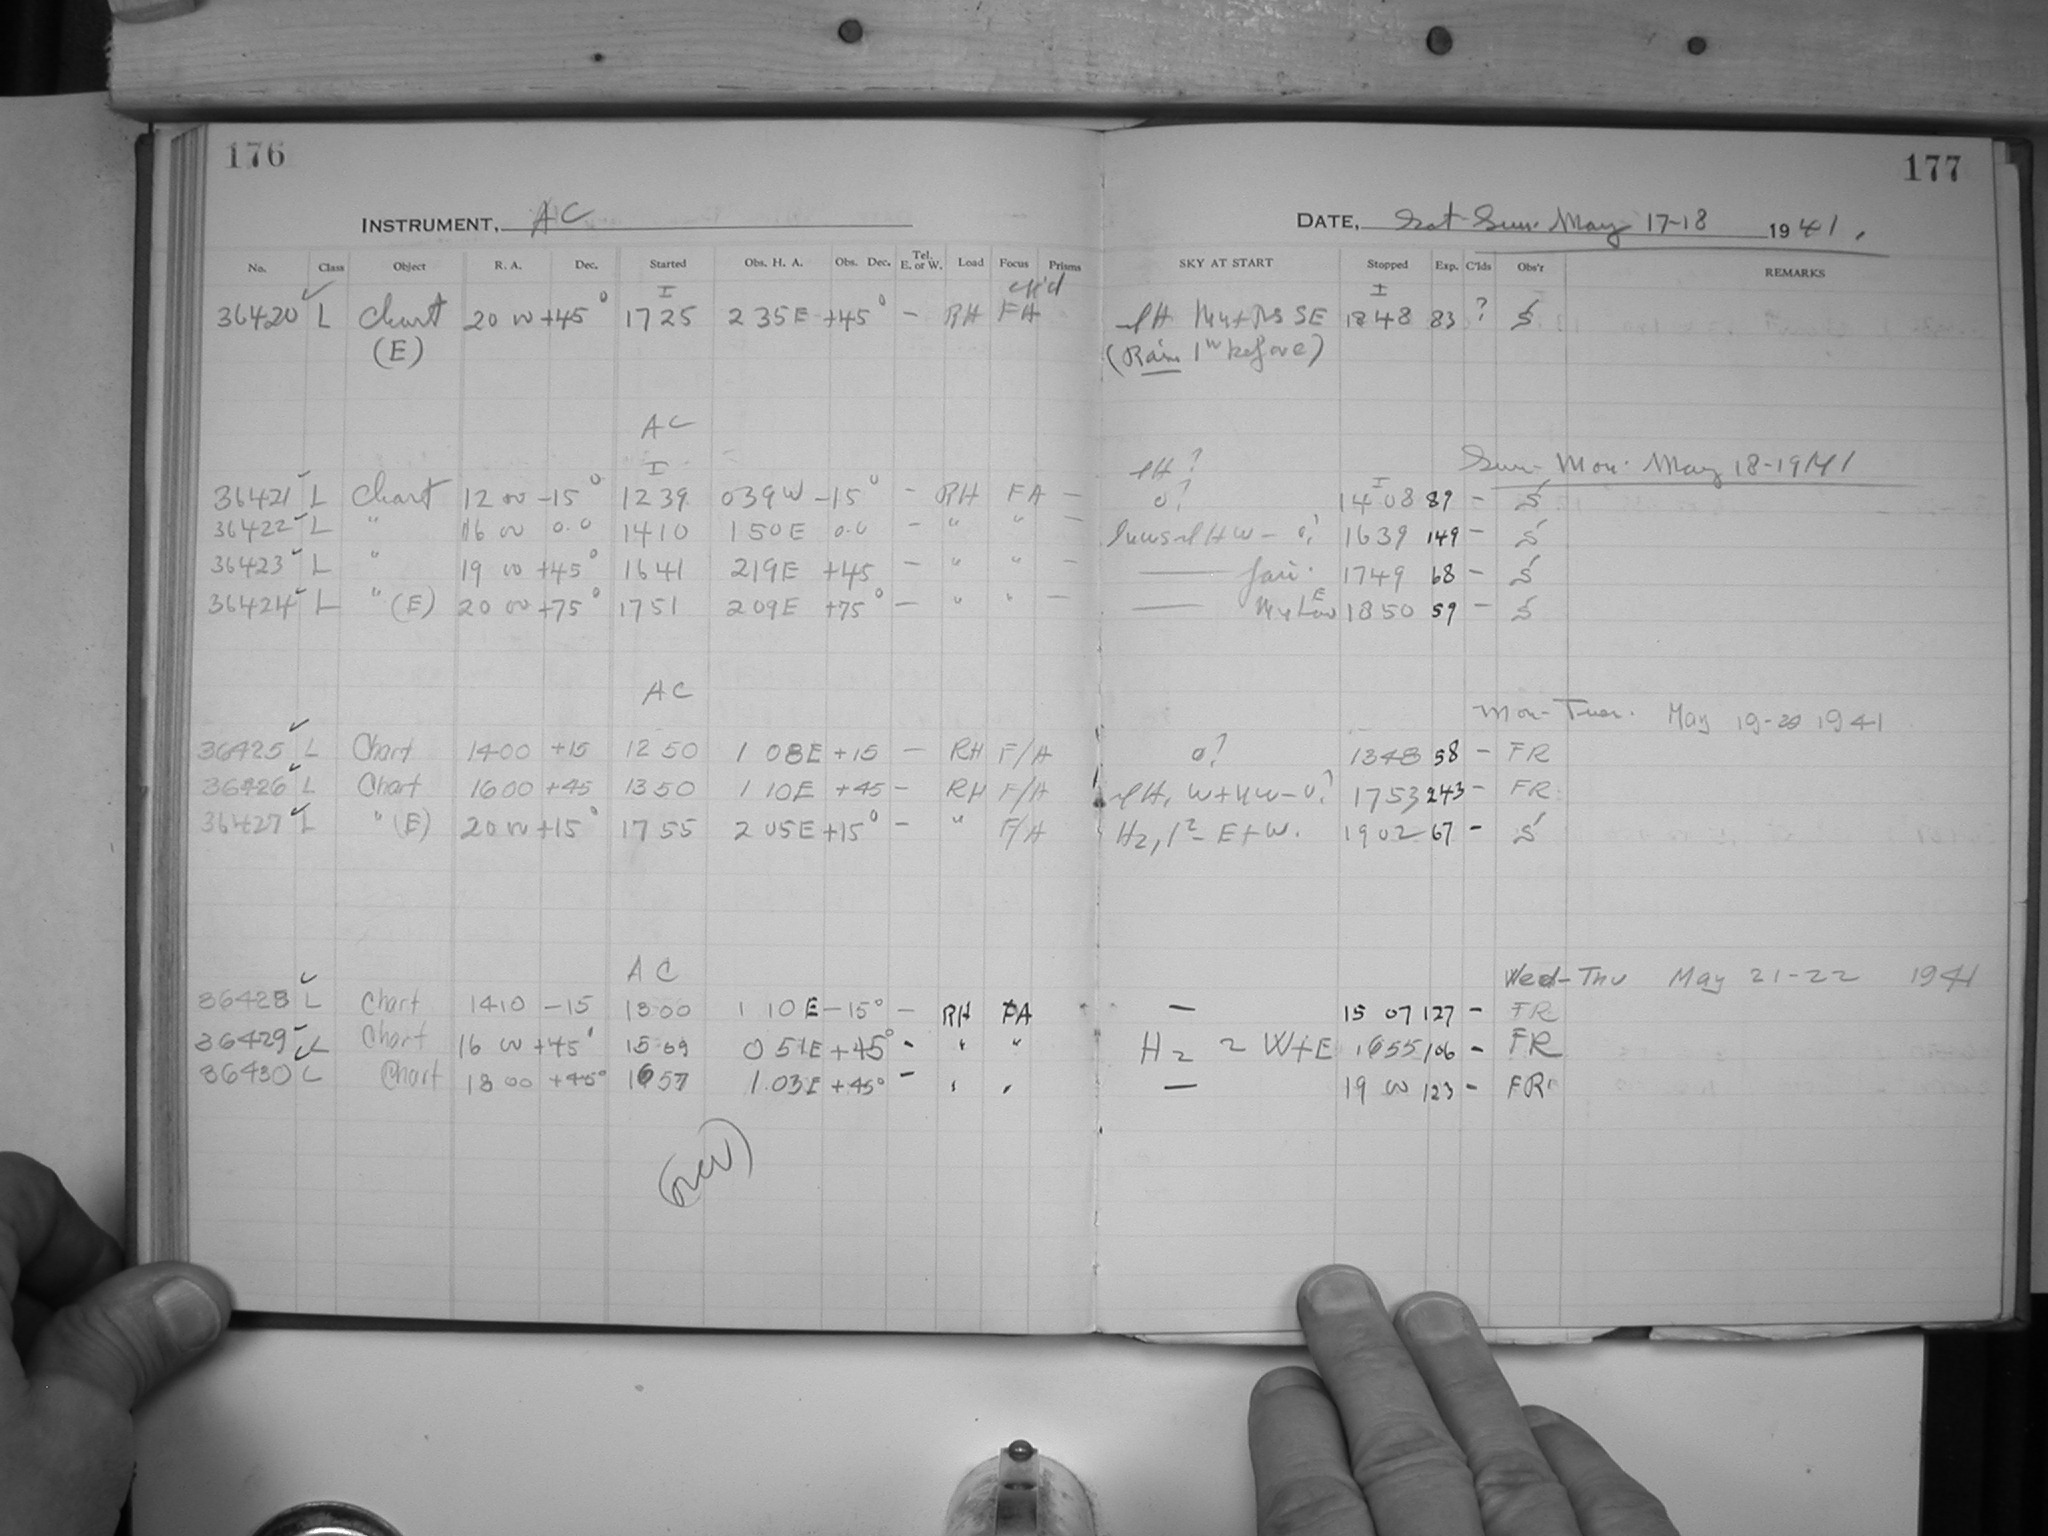 176
177
INSTRUMENT, AC
DATE, Sat-Sun. May 17-18 1941.
No. Class Object R. A. Dec. Started Obs. H. A. Obs. Dec. Tel. E. or W. Load Focus Prisms SKY AT START Stopped Exp. C'lds Obs'r REMARKS
ck'd
36420 L Chart 20 00 +45° 1725 2 35E +45° - RH FA SE 1848 83 ? S
(E) (Rain before)
AC
Sun-Mon. May 18-19 1941
36421 L Chart 12 00 -15° 1239 0 39W -15° - RH FA - 0? 1408 89 - S
36422 L " 16 00 0.0 1410 1 50E 0.0 - " " - 1639 149 - S
36423 L " 19 00 +45° 1641 2 19E +45 - " " - 1749 68 - S
36424 L " (E) 20 00 +75° 1751 2 09E +75° - " " - 1850 59 - S
AC
Mon-Tues. May 19-20 1941
36425 L Chart 1400 +15 1250 1 08E +15 - RH F/A 0? 1348 58 - FR
36426 L Chart 1600 +45 1350 1 10E +45 - RH F/A 1753 243 - FR
36427 L " (E) 20 00 +15° 1755 2 05E +15° - " F/A E+W. 1902 67 - S
AC
Wed-Thu May 21-22 1941
36428 L Chart 1410 -15 1300 1 10E -15° - RH FA - 15 07 127 - FR
36429 L Chart 16 00 +45° 1509 0 51E +45° - " " H2 2 W+E 1655 106 - FR
36430 L Chart 18 00 +45° 1657 1.03E +45° - " " - 19 00 123 - FR
(over)